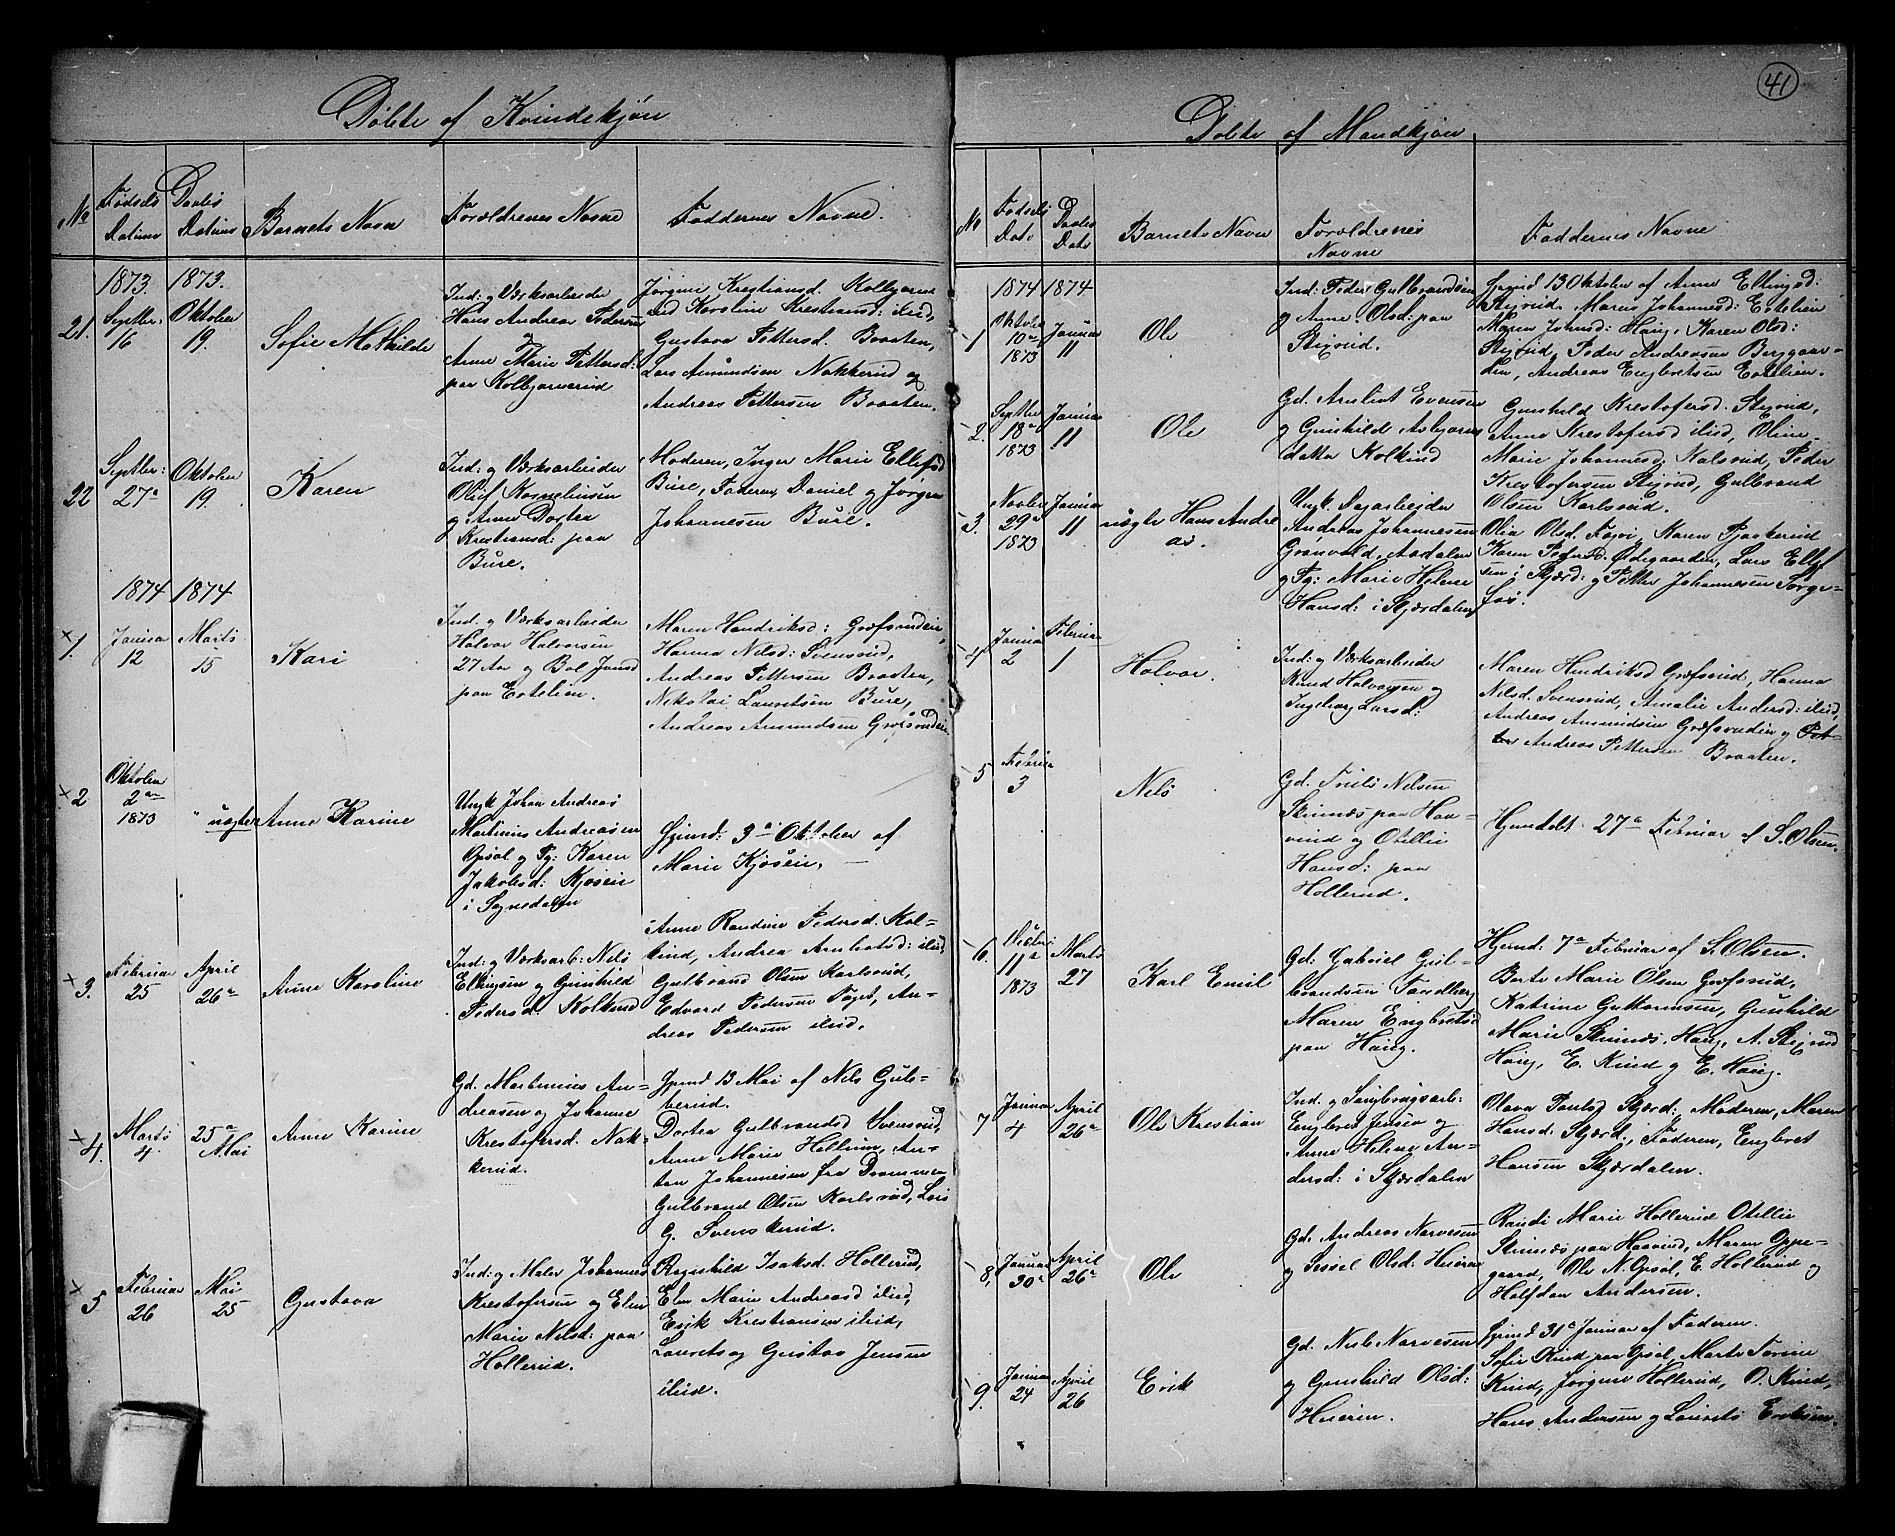 41
Döbte af Kvindekjøn
No
Fødsels Datum
Daabs Datum
Barnets Navn
Forældrenes Navne
Faddernes Navne.
1873. 1873.
21. Septbr: 16
Oktober 19.
Sofie Mathilde
Ind: og Værksarbeider
Hans Andreas Pedersen
og
Anne Marie Pettersd:
paa Kolbjørnsrud
Jørgine Krestiansd. Kolbjørns
rud Karoline Krestiansd: ibid,
Gustava Pettersd. Braaten,
Lars Amundsen Nakkerud og
Andreas Pettersen Braaten.
22 Septbr: 27de
Oktober 19.
Karen
Ind: og Værksarbeider
Oluf Korneliussen
og Anne Dortea
Krestiansd: paa
Bure.
Moderen, Inger Marie Ellefsd
Bure, Faderen, Daniel og Jørgen
Johannesen Bure.
1874 1874
1. Januar 12
Marts 15
Kari
Ind: og Værksarbeider
Halvor Halvorsen
27 Aar og Bol. Jensd
paa Eetelien.
Maren Hendriksd: Græfsrudeie,
Hanna Nilsd: Svensrud,
Andreas Pettersen Braaten,
Nikolai Lauretsen Bure,
Andreas Amundsen Græfsrudeie.
2 Oktober 2den 1873
" uægte Anne Karine
Ungk Johan Andreas
Martinius Andreasen
Opsal og Pg: Karen
Jakobsd: Kjøsen
i Sognedalen
Hjemd: 3de Oktober af
Marie Kjøsen.
3. Februar 25
April 26de
Anne Karoline
Ind: og Værksarb: Nils
Ellingsen og Gunhild
Pedersd. Kolkind
Anne Randine Pedersd. Kol=
kind, Andrea Arnbotsd: ibid,
Gulbrand Olsen Karlsrud,
Edvard Pedersen Foget, An=
dreas Pedersen ibid.
4. Marts 4.
25de Mai
Anne Karine
Gd. Martinius An=
dreasen og Johanne
Kristofersd. Nak=
kerud.
Hjemd 13 Mai af Nils Guls=
berud.
Dortea Gulbrandsd Svensrud,
Anne Marie Hollerud, An=
ton Johannesen fra Drammen
Gulbrand Olsen Karlsrud, Lars
G. Svenskerud.
5 Februar 26
Mai 25
Gustava
Ind: og Maler Johannes
Krestofersen og Elen
Marie Nilsd: paa
Hollerud.
Ragnhild Isaksd. Hollerud,
Elen Marie Andreasd ibid,
Erik Krestiansen ibid,
Laurets og Gustav Jensen
ibid.
Döbte af Mandkjøn
No
Fødsels Dato
Daabs Dato
Barnets Navn
Forældrenes Navne
Faddernes Navne
1874 1874
1 Oktober 10de 1873
Januar 11
Ole
Ind: Peder Gulbrandsen
og Anne Olsd: paa
Stixrud.
Hjemd 13 Oktober af Anne Ellingsd:
Stixrud. Maren Johannesd: Eetelien
Maren Johnsd: Haug, Karen Olsd:
Stixrud, Peder Andreasen Berggaar=
den, Andreas Engbretsen Eetelien.
2. Septbr 18de 1873
Januar 11
Ole
Gd. Arnbint Evensen
og Gunhild Asbjørns
datter Kolkind
Gunhild Krestofersd. Stixrud,
Anne Krestofersd ibid, Oline
Marie Johannesd: Nalsrud, Peder
Krestofersen Stixrud, Gulbrand
Olsen Karlsrud.
3. Novbr 29de 1873
Januar 11
uægte Hans Andre
as.
Ungk. Sagarbeider
Andreas Johannesen
Grønvold, Aadalen
og Pg: Marie Helene
Hansd: i Skjærdalen
Olia Olsd. Karen Pjaakerud
Karen Pedersd. Ødegaarden, Lars Ellef
sen i Skjærd: og Petter Johannesen Sørge=
fos.
4 Januar 2
Februar 1
Halvor.
Ind: og Værksarbeider
Knud Halvorsen og
Ingeborg Larsd:
Maren Hendriksd Græfsrud, Hanna
Nilsd. Svensrud, Amalie Andersd: ibid,
Andreas Amundsen Græfsrudeie og Pet=
ter Andreas Pettersen Braaten.
5 Februar 3
Nels
Gd. Truls Nelsen
Skinnæs paa Haa=
vind og Otellie
Hansd: paa
Hollerud.
Hjemdøbt 27de Februar af S. Olsen.
6. 11te 1873
Marts 27
Karl Emil
Gd: Gabriel Gul=
brandsen Sandberg
Maren Engbretsd
paa Haug.
Hjemd: 7de Februar af S. Olsen.
Berte Marie Olsen Græfsrud,
Katrine Guttormsen, Gunhild
Marie Skinnæs, Haug, A. Stixrud
Haug, E. Kind og E. Haug.
7 Januar 4
April 26de
Ole Kristian
Ind. og Sagbrugsarb:
Engbret Jensen og
Anne Helene An=
dersd: i Skjærdalen
Olava Paulsd Skjærd: Moderen, Maren
Hansd. Skjærd:, Faderen, Engbret
Hansen Skjærdalen.
8. Januar 30te
April 26de
Ole
Gd. Andreas Narvesen
og Sissel Olsd: Hieren
Randi Marie Hollerud Otellie
Skinnæs paa Haavind, Maren Oppe=
gaard, Ole N. Opsal, E. Hollerud og
Halfdan Andersen.
9. Januar 24
April 26
Erik
Gd. Niels Narvesen
og Gunhild Olsd:
Hieren.
Hjemd 31te Januar af Faderen.
Sofie Kind paa Opsal, Marte Torine
Kind, Jørgine Hollerud, O. Kind,
Hans Andersen og Laurets Eriksen.